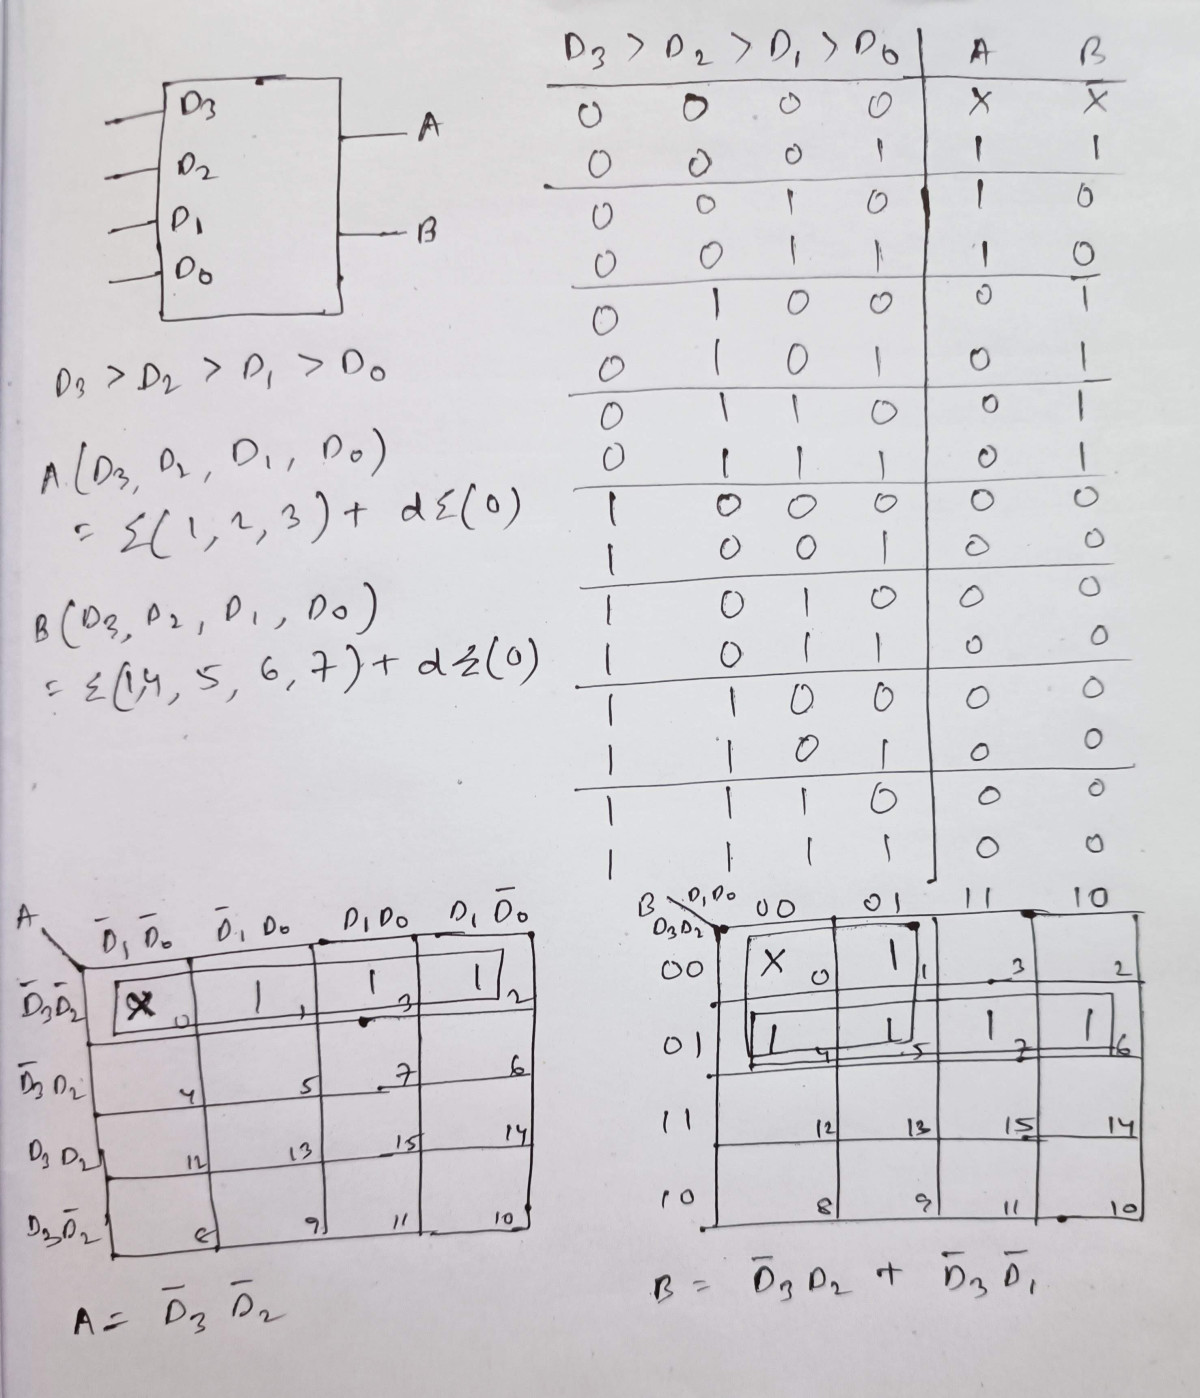 D3
D2
D1
D0
A
B
D3 > D2 > D1 > D0
A (D3, D2, D1, D0)
= Σ(1, 2, 3) + dΣ(0)
B (D3, D2, D1, D0)
= Σ(1,4, 5, 6, 7) + dΣ(0)
D3 > D2 > D1 > D0 A B
0 0 0 0 X X
0 0 0 1 1 1
0 0 1 0 1 0
0 0 1 1 1 0
0 1 0 0 0 1
0 1 0 1 0 1
0 1 1 0 0 1
0 1 1 1 0 1
1 0 0 0 0 0
1 0 0 1 0 0
1 0 1 0 0 0
1 0 1 1 0 0
1 1 0 0 0 0
1 1 0 1 0 0
1 1 1 0 0 0
1 1 1 1 0 0
A D̅1 D̅0 D̅1 D0 D1 D0 D1 D̅0
D̅3 D̅2 X 0 1 1 1 3 1 2
D̅3 D2 4 5 7 6
D3 D2 12 13 15 14
D3 D̅2 8 9 11 10
A = D̅3 D̅2
B D1 D0 00 01 11 10
D3 D2
00 X 0 1 1 3 2
01 1 4 1 5 1 7 1 6
11 12 13 15 14
10 8 9 11 10
B = D̅3 D2 + D̅3 D̅1